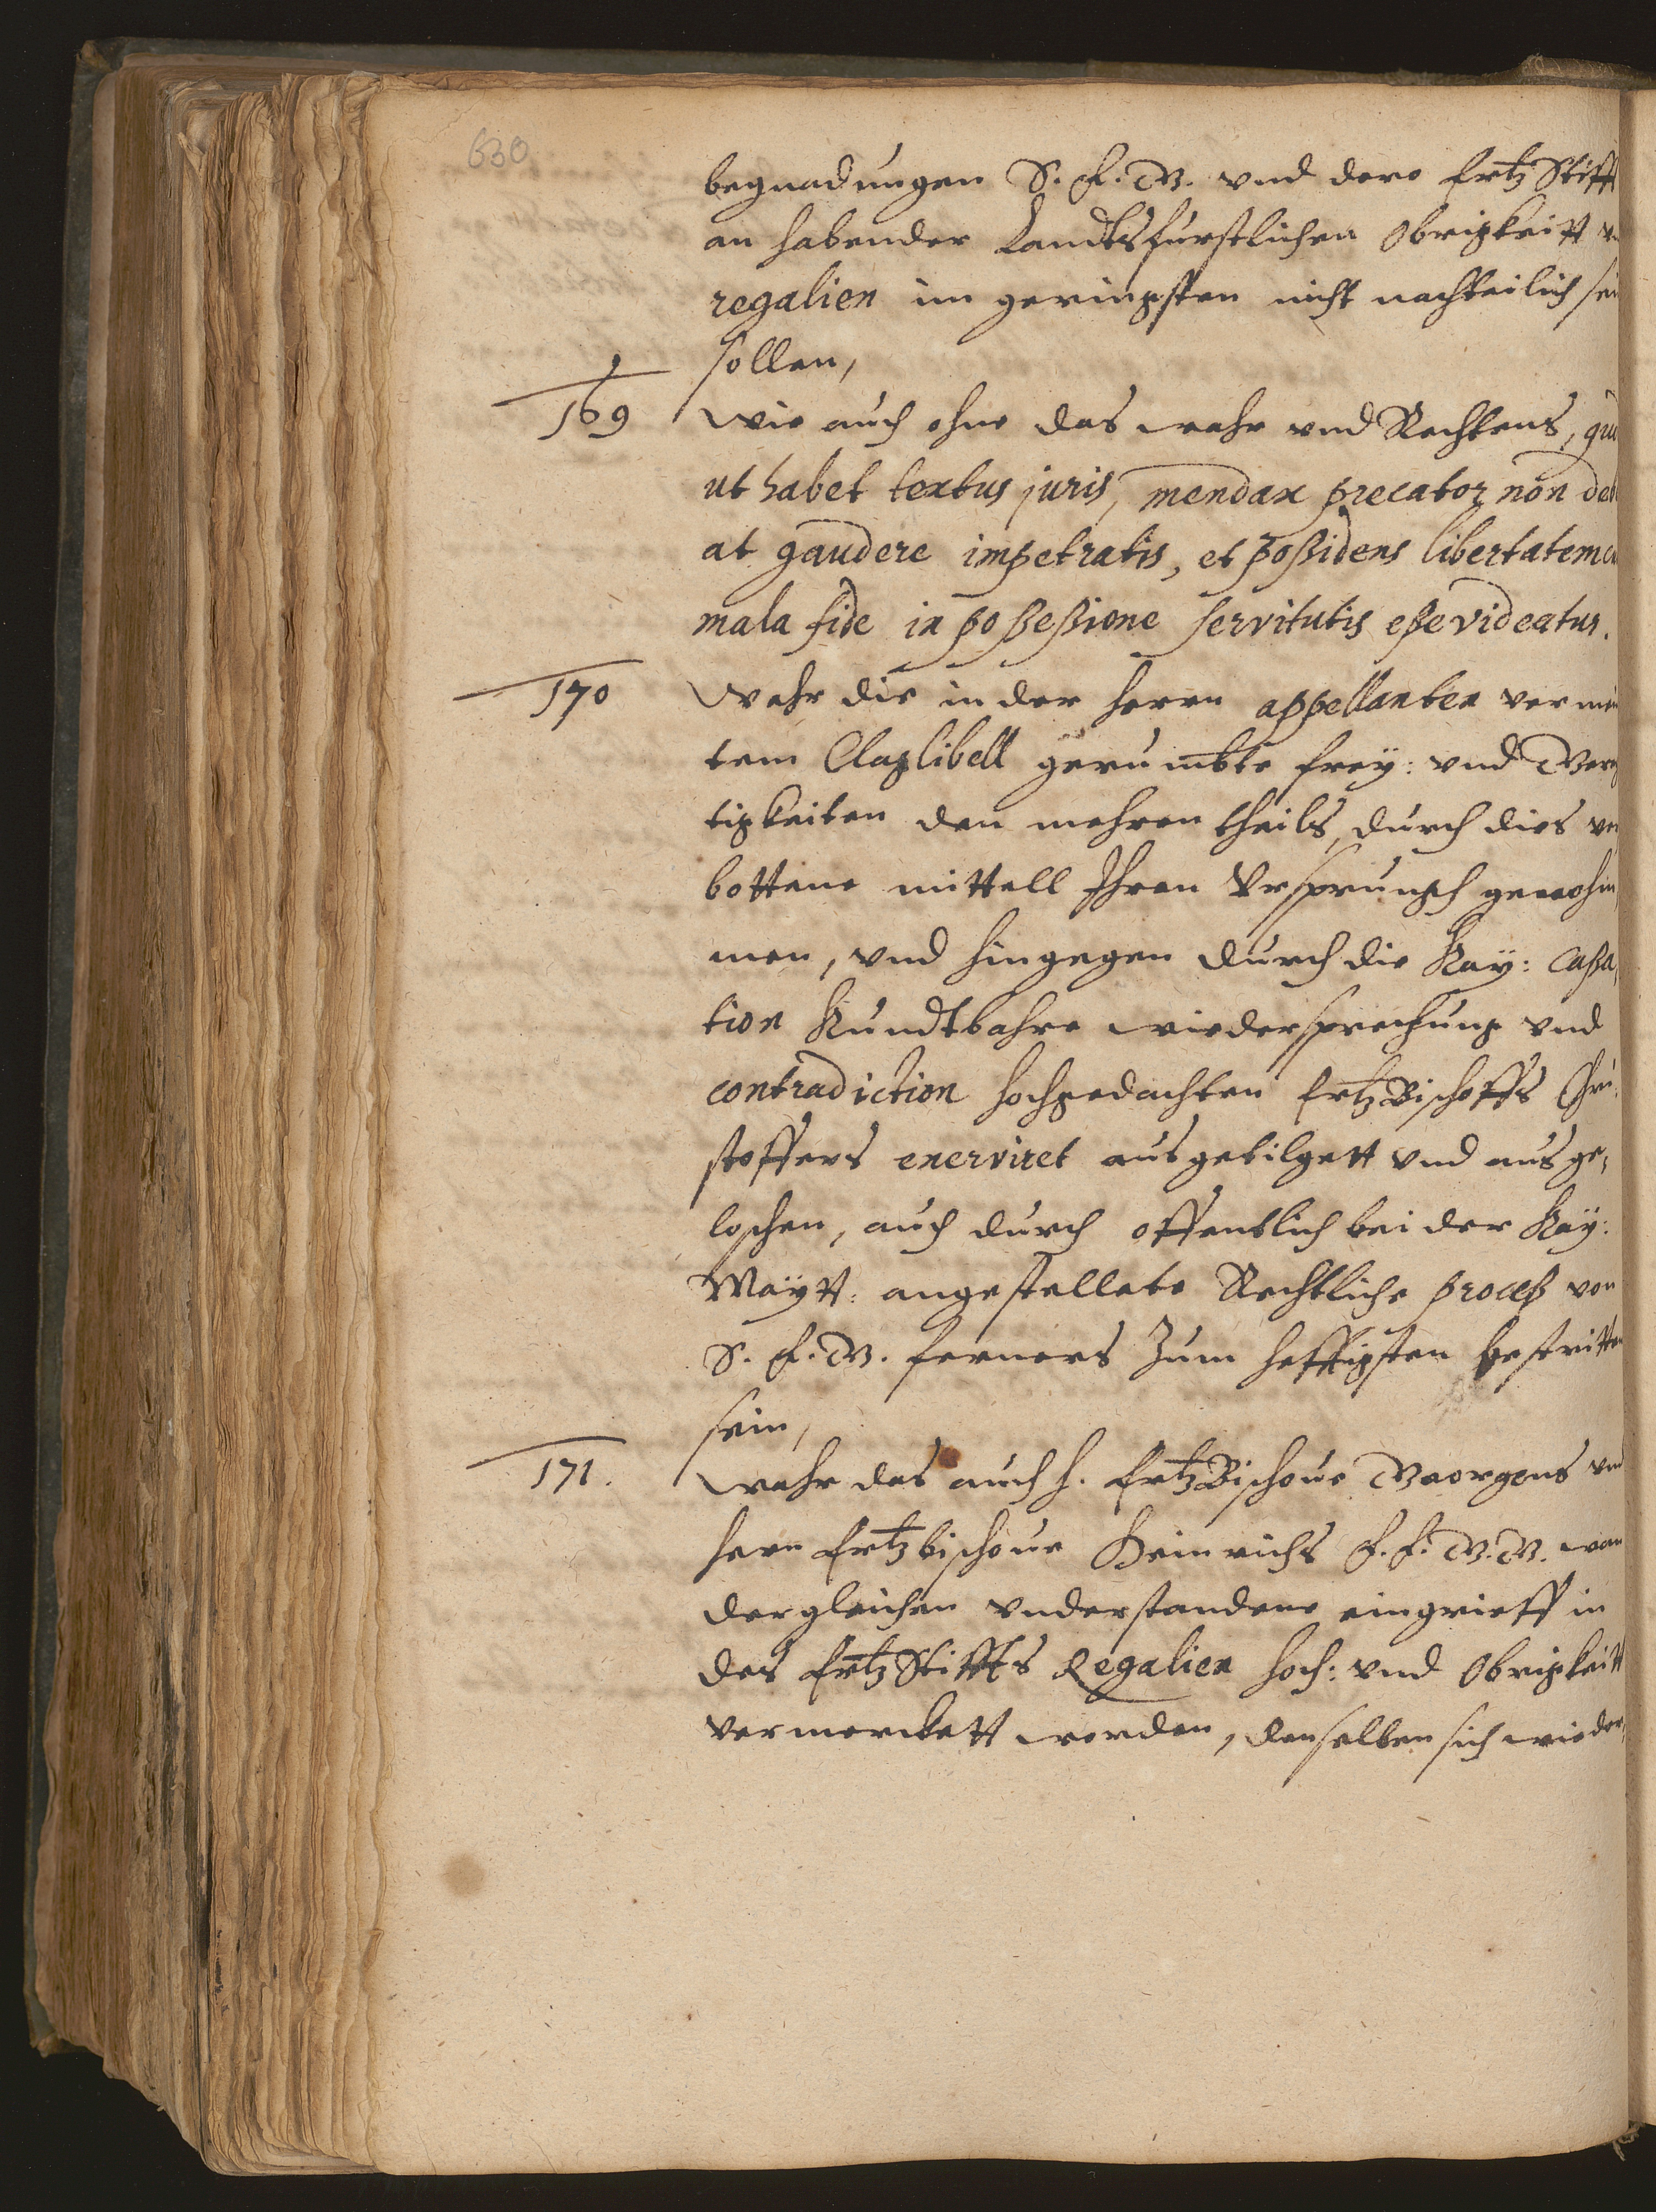 630
begnadungen S. F. G. vnd dero Ertz Stifft
an habender Landtsfurstlichen Obrigkeitt
regalien im geringsten nicht nachteilich sei
sollen,
169 Wie auch ohne das wahr und Rechtens,
ut habet textus juris, mendax precator non deb
at gaudere impetratis, et poßidens libertatem
mala fide in poßeßione servitutis eße videatur.
170 Wahr die in der Herrn appellanten vermein
tem Claglibell gerumbte frey: vnd Gerech
tigkeiten den mehren theils, durch dies ver
bottene mittell Ihren Vrsprungh genohm
men, vnd hingegen durch die Kay: caßa,
tion Kundtbahre wiedersprechung vnd
contradiction hochgedachten ErtzBischoffs Chri,
stoffers enerviret ausgetilgett vnd aus ge,
loschen, auch durch offentlich bei der Kay:
Maytt: angestellete Rechtliche proceß von
S. F. G. ferners Zum hefftigsten bestritten
sein,
171. Wahr das auch H. ErtzBischoue Georgens vnd
Hern Ertzbischoue Heinrichs F. F. G. G. wan
dergleichen vnderstandene eingrieff in
des ErtzStiffts Regalien hoch: vnd Obrigkeitt
vermerckett worden, denselben sich wieder,